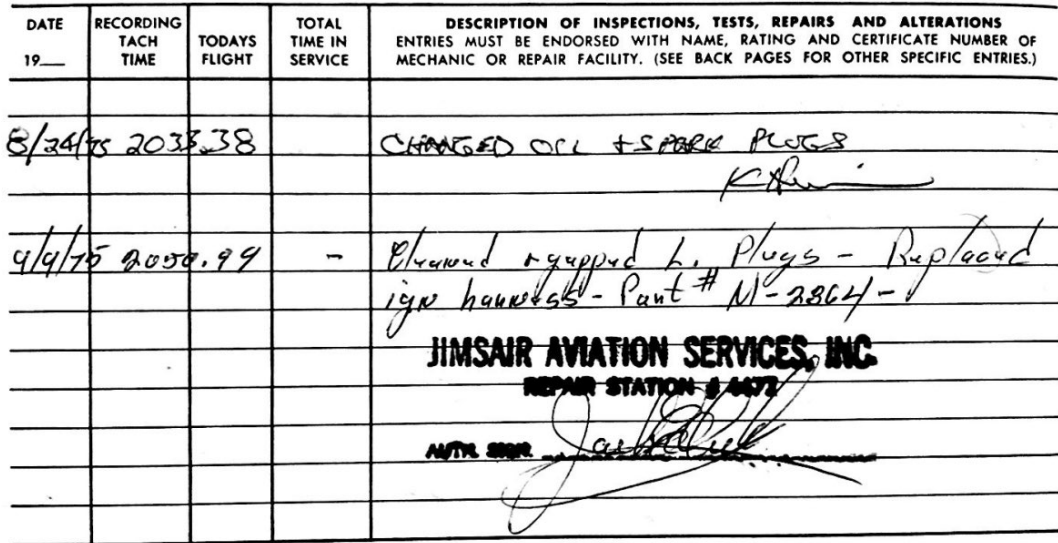 DATE 19__ RECORDING TACH TIME TODAYS FLIGHT TOTAL TIME IN SERVICE DESCRIPTION OF INSPECTIONS, TESTS, REPAIRS AND ALTERATIONS
ENTRIES MUST BE ENDORSED WITH NAME, RATING AND CERTIFICATE NUMBER OF
MECHANIC OR REPAIR FACILITY. (SEE BACK PAGES FOR OTHER SPECIFIC ENTRIES.)
8/24/75 2033.38 CHANGED OIL + SPARK PLUGS
9/9/75 2050.99 - Cleaned + gapped L. Plugs - Replaced
ign harness - Part # M-2864 -
JIMSAIR AVIATION SERVICES, INC.
REPAIR STATION # 4472
AUTH. SIGN.